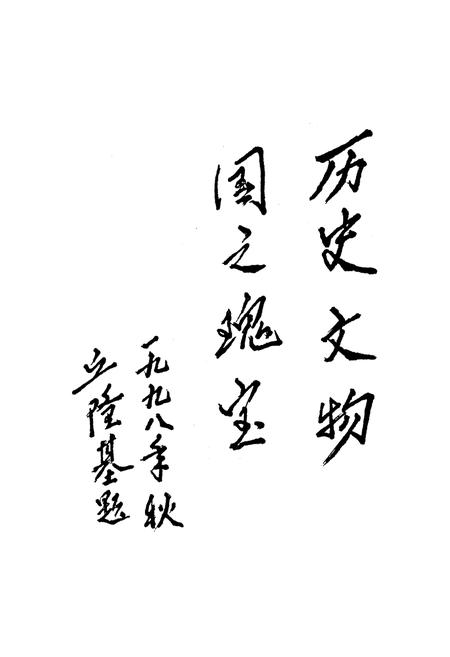 历史文物
国之瑰宝
一九九八年秋
丘隆基题